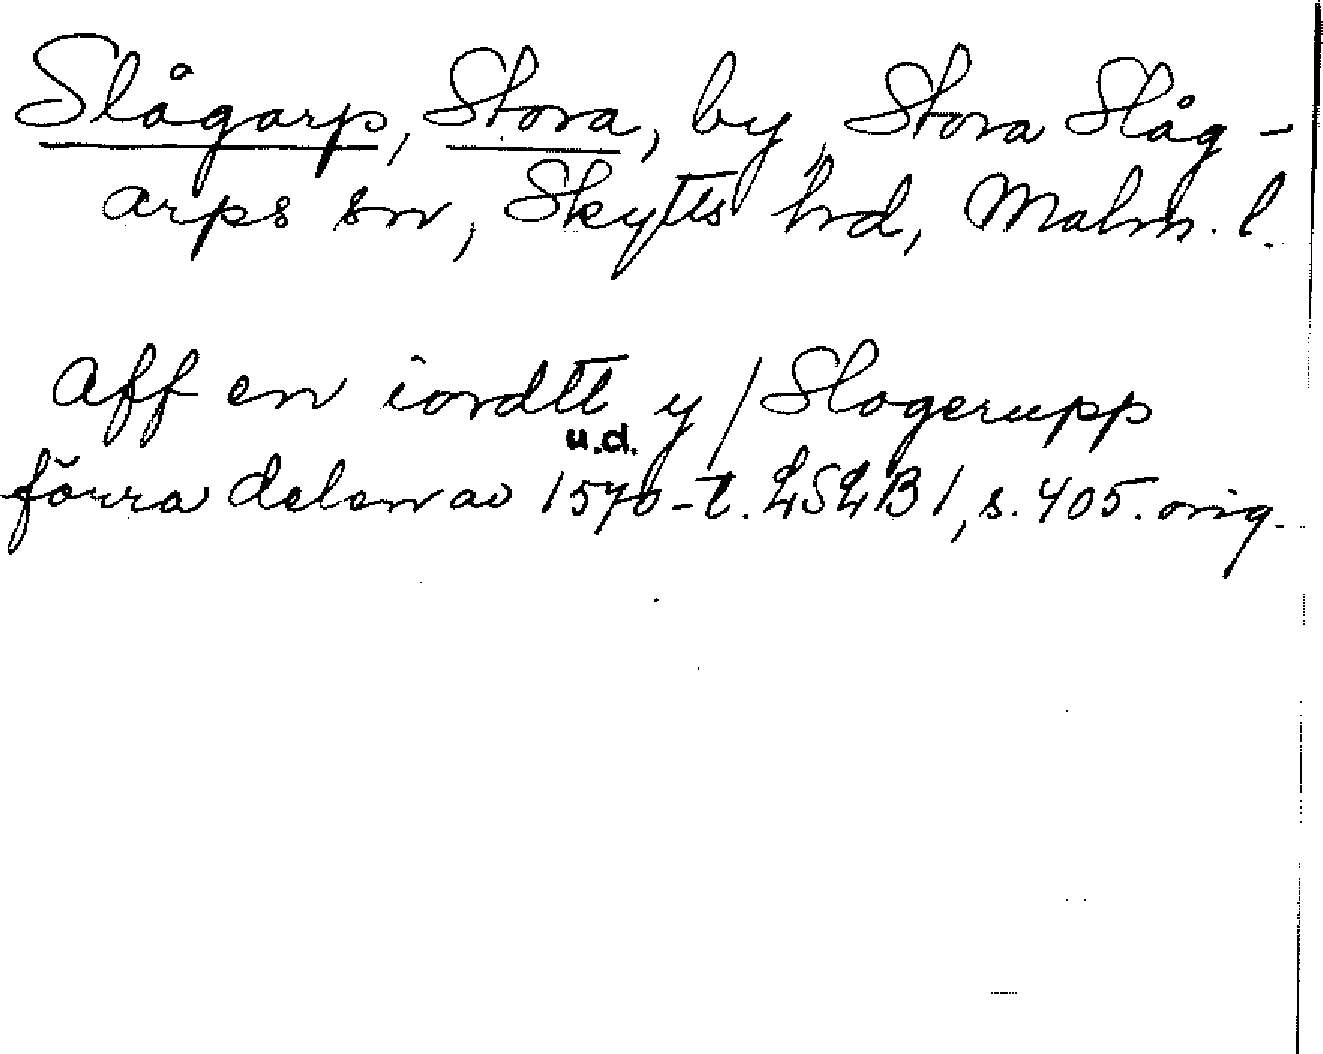 Slågarp, Stora, by, Stora Slåg-
arps sn, Skytts hd, Malm. l.
Aff en iordtt y / Slogerupp
u.d.
förra delen av 1570-t. LSLB1, s. 405. orig.